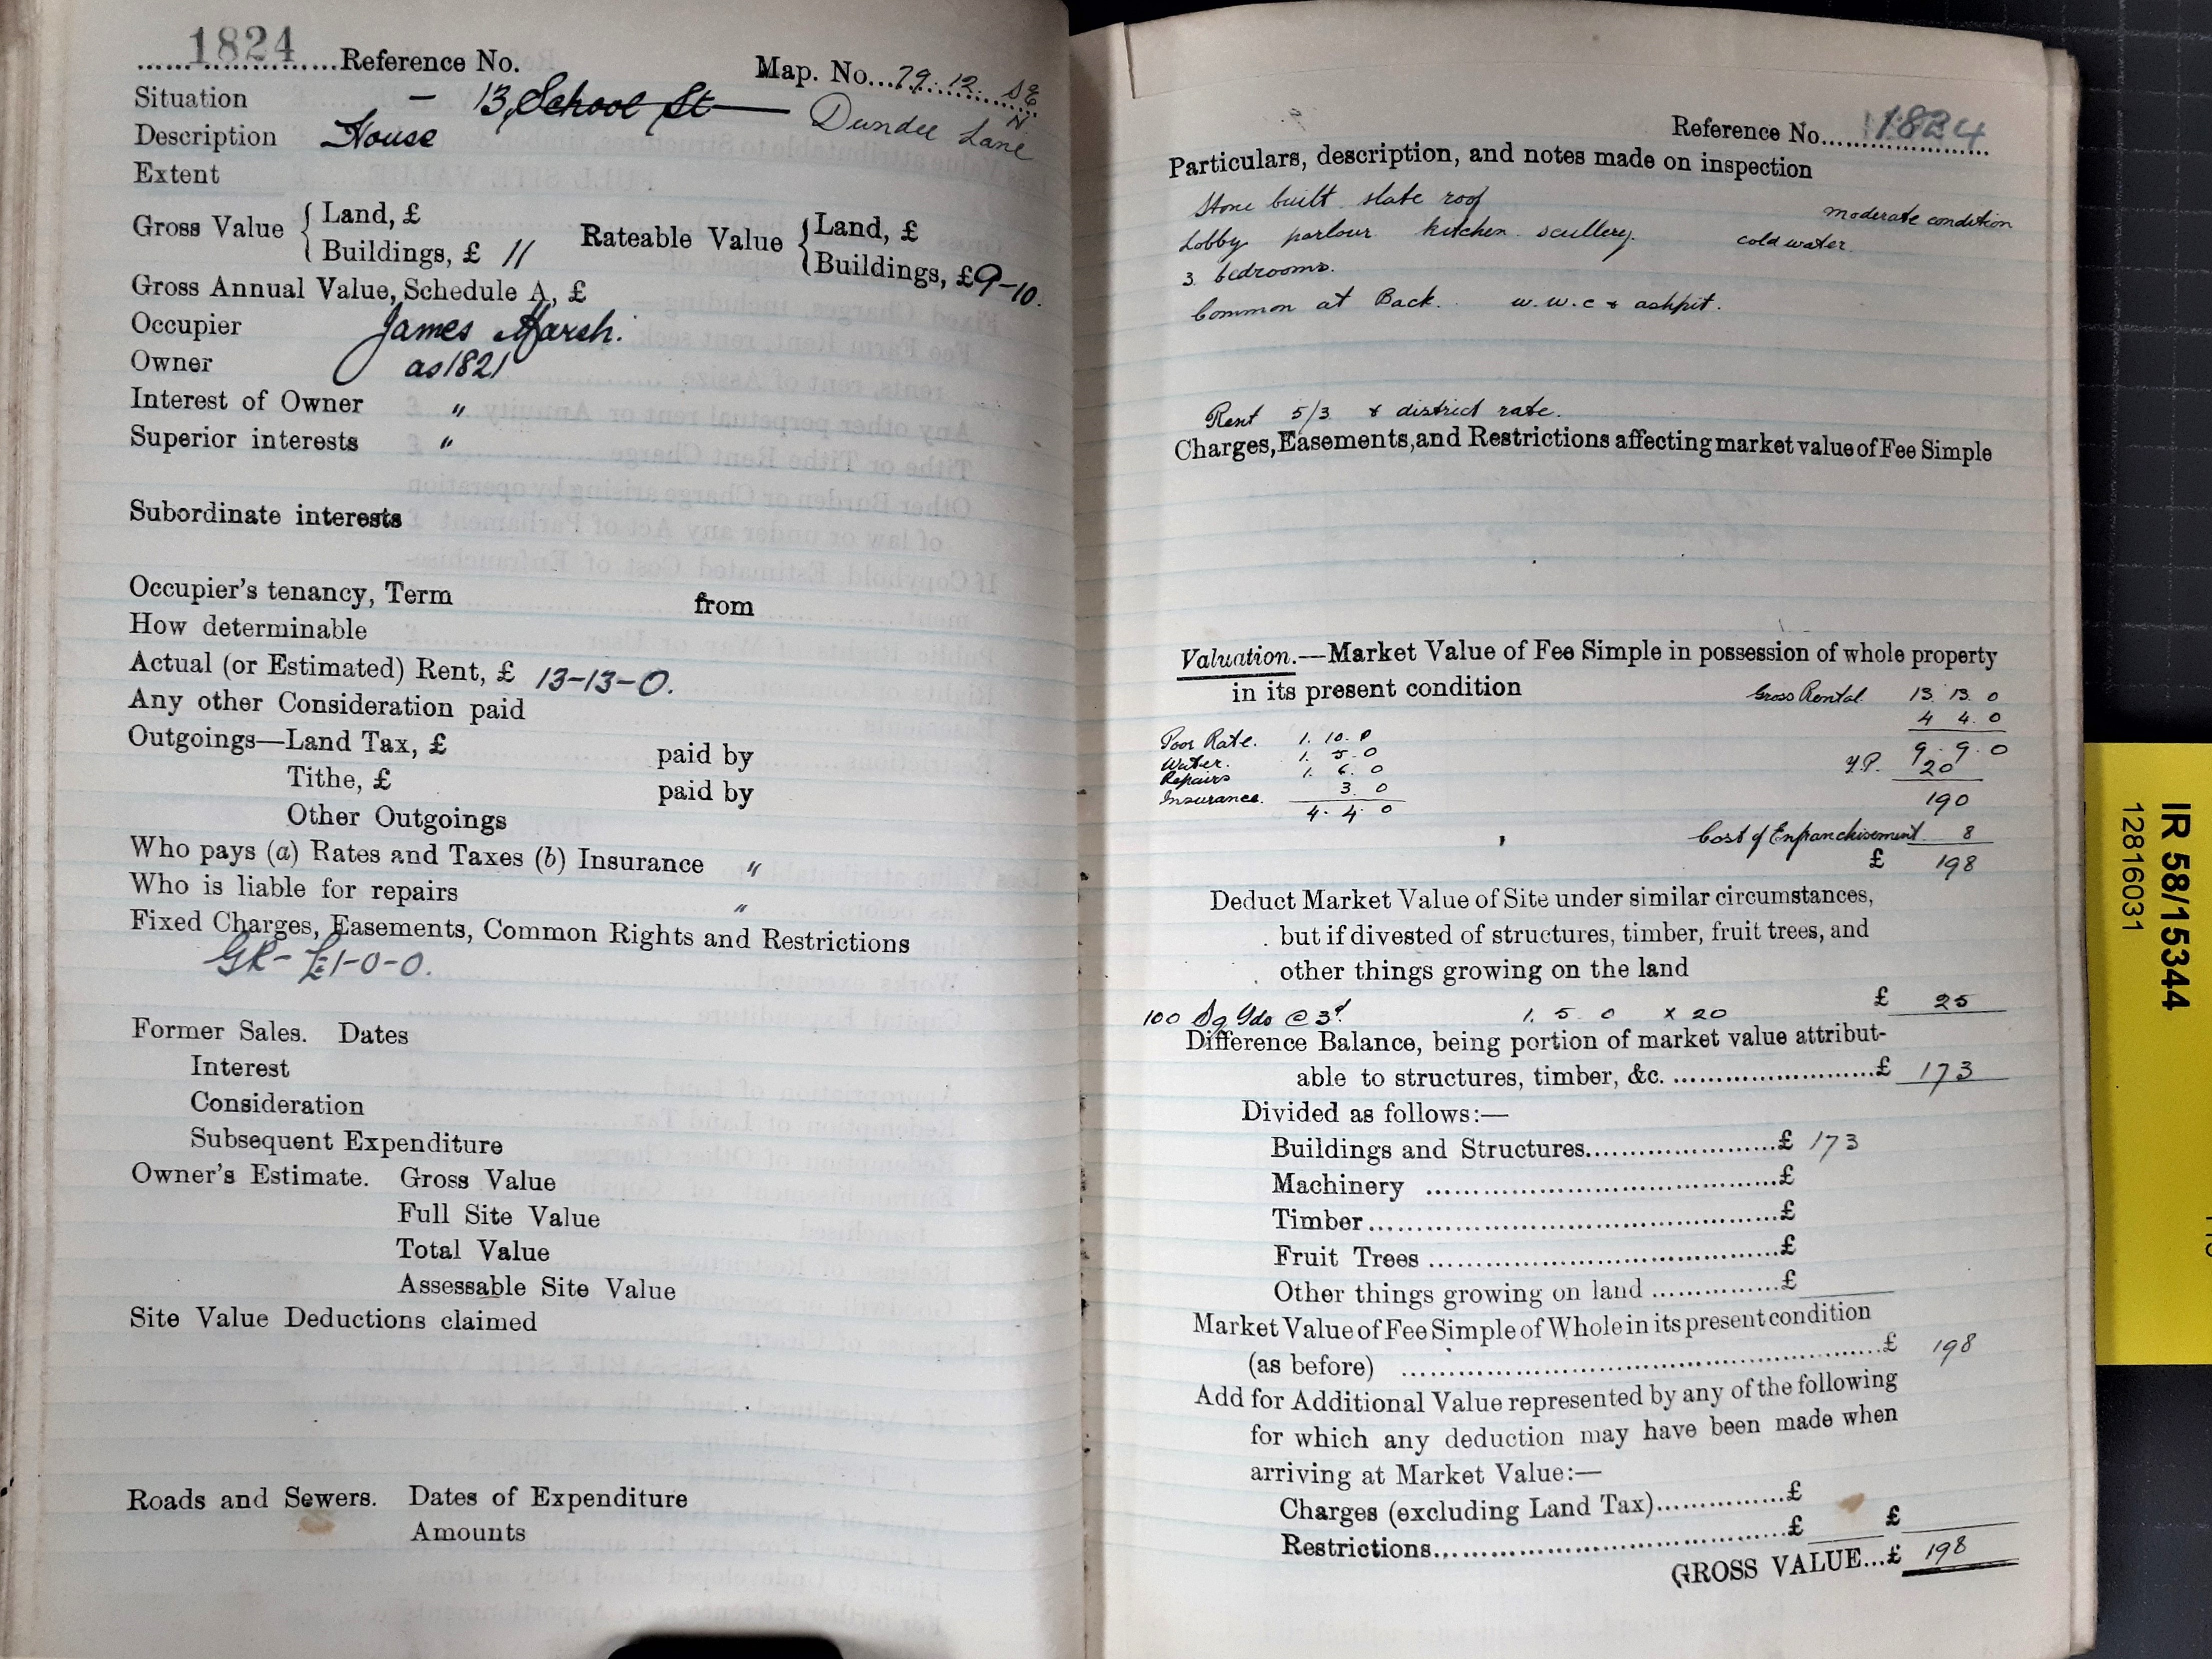 1824
Reference No.
Map. No...79.12. SE
N
Situation - 13, School St Dundee Lane
Description House
Extent
Gross Value { Land, £
Buildings, £ 11
Rateable Value { Land, £
Buildings, £ 9-10.
Gross Annual Value, Schedule A, £
Occupier James Marsh.
Owner as 1821
Interest of Owner "
Superior interests "
Subordinate interests
Occupier's tenancy, Term from
How determinable
Actual (or Estimated) Rent, £ 13-13-0.
Any other Consideration paid
Outgoings—Land Tax, £ paid by
Tithe, £ paid by
Other Outgoings
Who pays (a) Rates and Taxes (b) Insurance "
Who is liable for repairs "
Fixed Charges, Easements, Common Rights and Restrictions
GR- £1-0-0.
Former Sales. Dates
Interest
Consideration
Subsequent Expenditure
Owner's Estimate. Gross Value
Full Site Value
Total Value
Assessable Site Value
Site Value Deductions claimed
Roads and Sewers. Dates of Expenditure
Amounts
Reference No. 1824
Particulars, description, and notes made on inspection
Stone built slate roof moderate condition
Lobby parlour kitchen scullery. cold water.
3 bedrooms.
Common at Back. w.w.c & ashpit.
Rent 5/3 & district rate.
Charges, Easements, and Restrictions affecting market value of Fee Simple
Valuation.—Market Value of Fee Simple in possession of whole property
in its present condition
Gross Rental 13. 13. 0
4 4. 0
9. 9. 0
Y.P. 20
190
Poor Rate. 1. 10. 0
Water. 1. 5. 0
Repairs 1. 6. 0
Insurance. 3. 0
4. 4. 0
Cost of Enfranchisement 8
£ 198
Deduct Market Value of Site under similar circumstances,
but if divested of structures, timber, fruit trees, and
other things growing on the land
100 Sq Yds @ 3d 1. 5. 0 x 20 £ 25
Difference Balance, being portion of market value attribut-
able to structures, timber, &c. £ 173
Divided as follows:—
Buildings and Structures £ 173
Machinery £
Timber £
Fruit Trees £
Other things growing on land £
Market Value of Fee Simple of Whole in its present condition
(as before) £ 198
Add for Additional Value represented by any of the following
for which any deduction may have been made when
arriving at Market Value:—
Charges (excluding Land Tax) £
Restrictions £ £
GROSS VALUE...£ 198
IR 58/15344
12816031